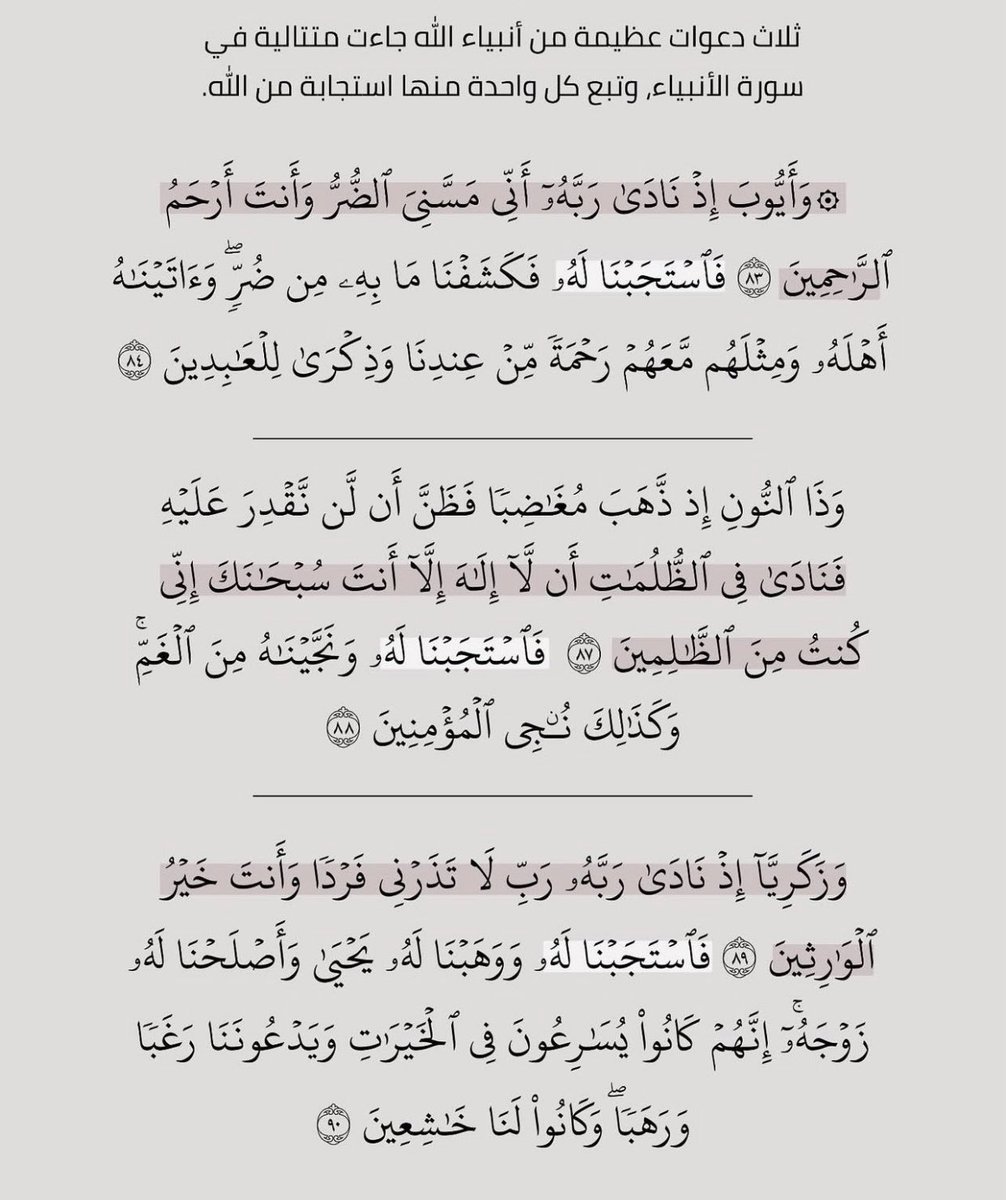 ثلاث دعوات عظيمة من أنبياء الله جاءت متتالية في
سورة الأنبياء، وتبع كل واحدة منها استجابة من الله.
۞ وَأَيُّوبَ إِذۡ نَادَىٰ رَبَّهُۥٓ أَنِّي مَسَّنِيَ ٱلضُّرُّ وَأَنتَ أَرۡحَمُ
ٱلرَّٰحِمِينَ ٨٣ فَٱسۡتَجَبۡنَا لَهُۥ فَكَشَفۡنَا مَا بِهِۦ مِن ضُرّٖۖ وَءَاتَيۡنَٰهُ
أَهۡلَهُۥ وَمِثۡلَهُم مَّعَهُمۡ رَحۡمَةٗ مِّنۡ عِندِنَا وَذِكۡرَىٰ لِلۡعَٰبِدِينَ ٨٤
وَذَا ٱلنُّونِ إِذ ذَّهَبَ مُغَٰضِبٗا فَظَنَّ أَن لَّن نَّقۡدِرَ عَلَيۡهِ
فَنَادَىٰ فِي ٱلظُّلُمَٰتِ أَن لَّآ إِلَٰهَ إِلَّآ أَنتَ سُبۡحَٰنَكَ إِنِّي
كُنتُ مِنَ ٱلظَّٰلِمِينَ ٨٧ فَٱسۡتَجَبۡنَا لَهُۥ وَنَجَّيۡنَٰهُ مِنَ ٱلۡغَمِّۚ
وَكَذَٰلِكَ نُـۨجِي ٱلۡمُؤۡمِنِينَ ٨٨
وَزَكَرِيَّآ إِذۡ نَادَىٰ رَبَّهُۥ رَبِّ لَا تَذَرۡنِي فَرۡدٗا وَأَنتَ خَيۡرُ
ٱلۡوَٰرِثِينَ ٨٩ فَٱسۡتَجَبۡنَا لَهُۥ وَوَهَبۡنَا لَهُۥ يَحۡيَىٰ وَأَصۡلَحۡنَا لَهُۥ
زَوۡجَهُۥٓۚ إِنَّهُمۡ كَانُواْ يُسَٰرِعُونَ فِي ٱلۡخَيۡرَٰتِ وَيَدۡعُونَنَا رَغَبٗا
وَرَهَبٗاۖ وَكَانُواْ لَنَا خَٰشِعِينَ ٩٠